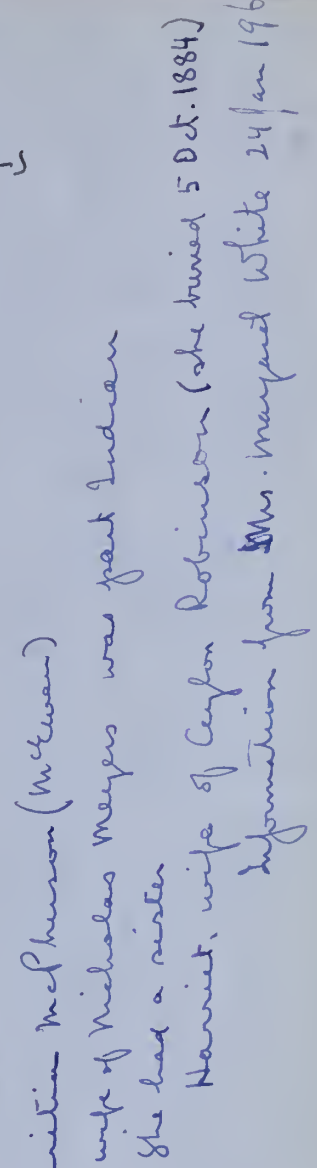 McPherson (McEwen)
wife of Nicholas Meyers was part Indian
She had a sister
Harriet, wife of Ceylon Robinson (she buried 5 Oct. 1884)
Information from Mrs. Margaret White 24 Jan 196